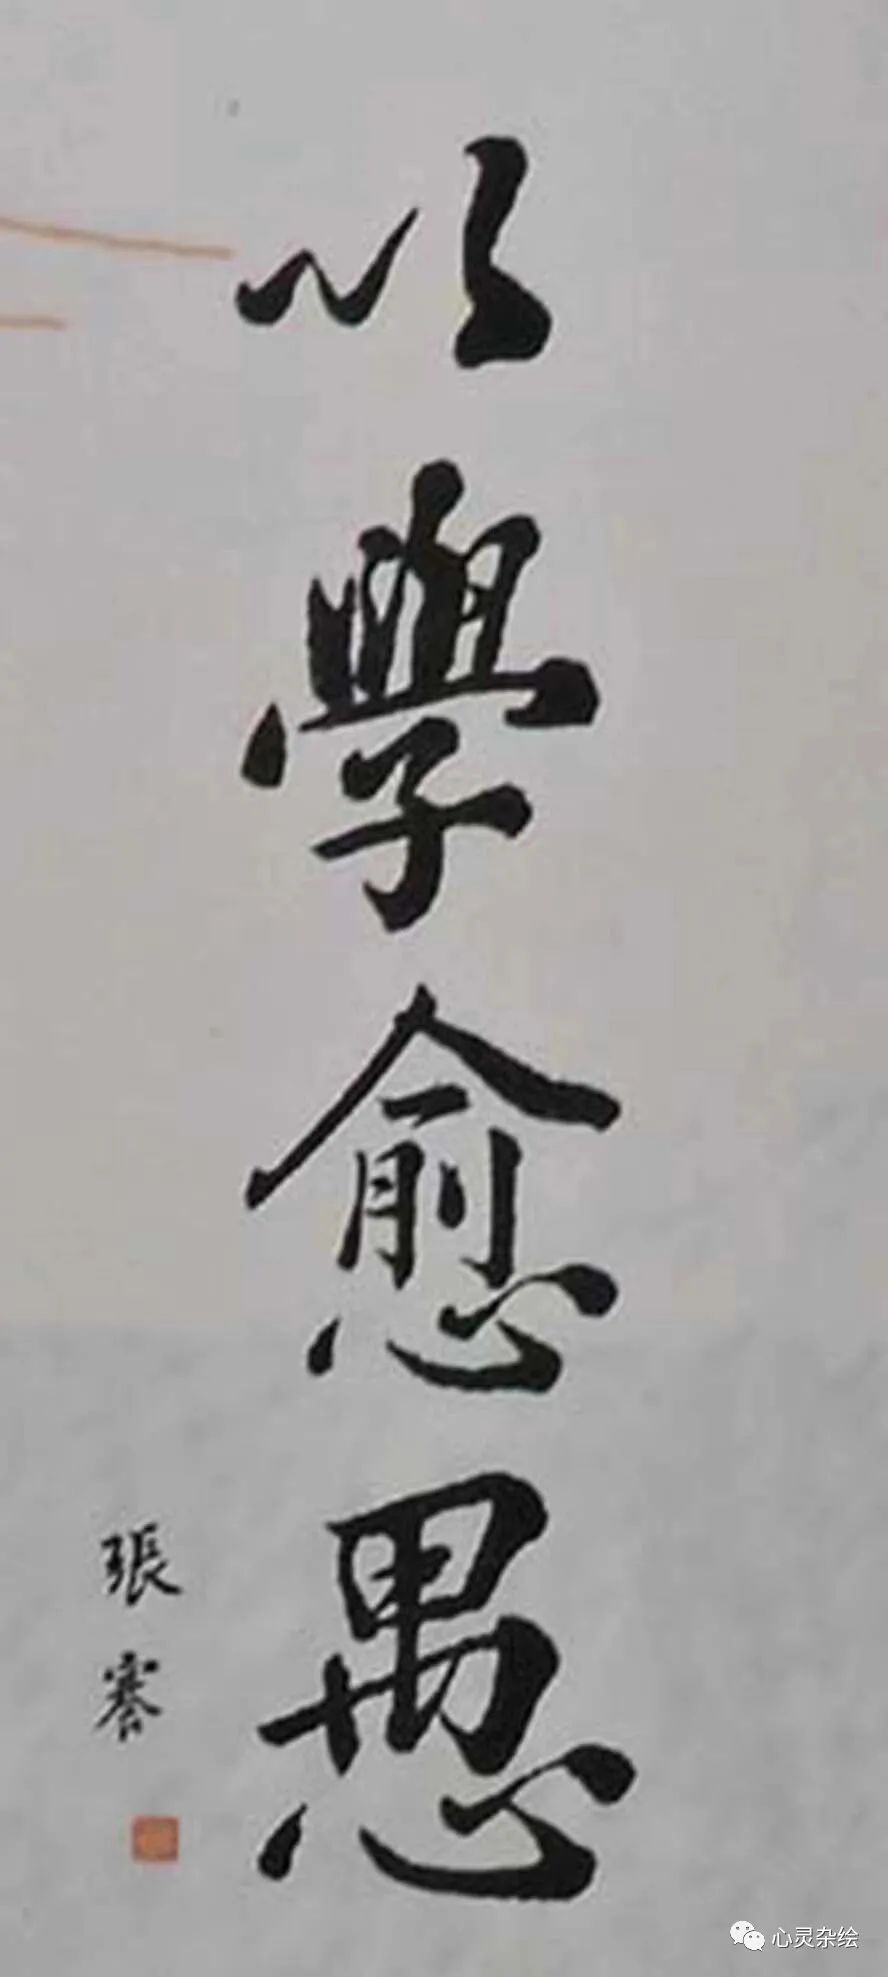 以學愈愚
張謇
心灵杂绘